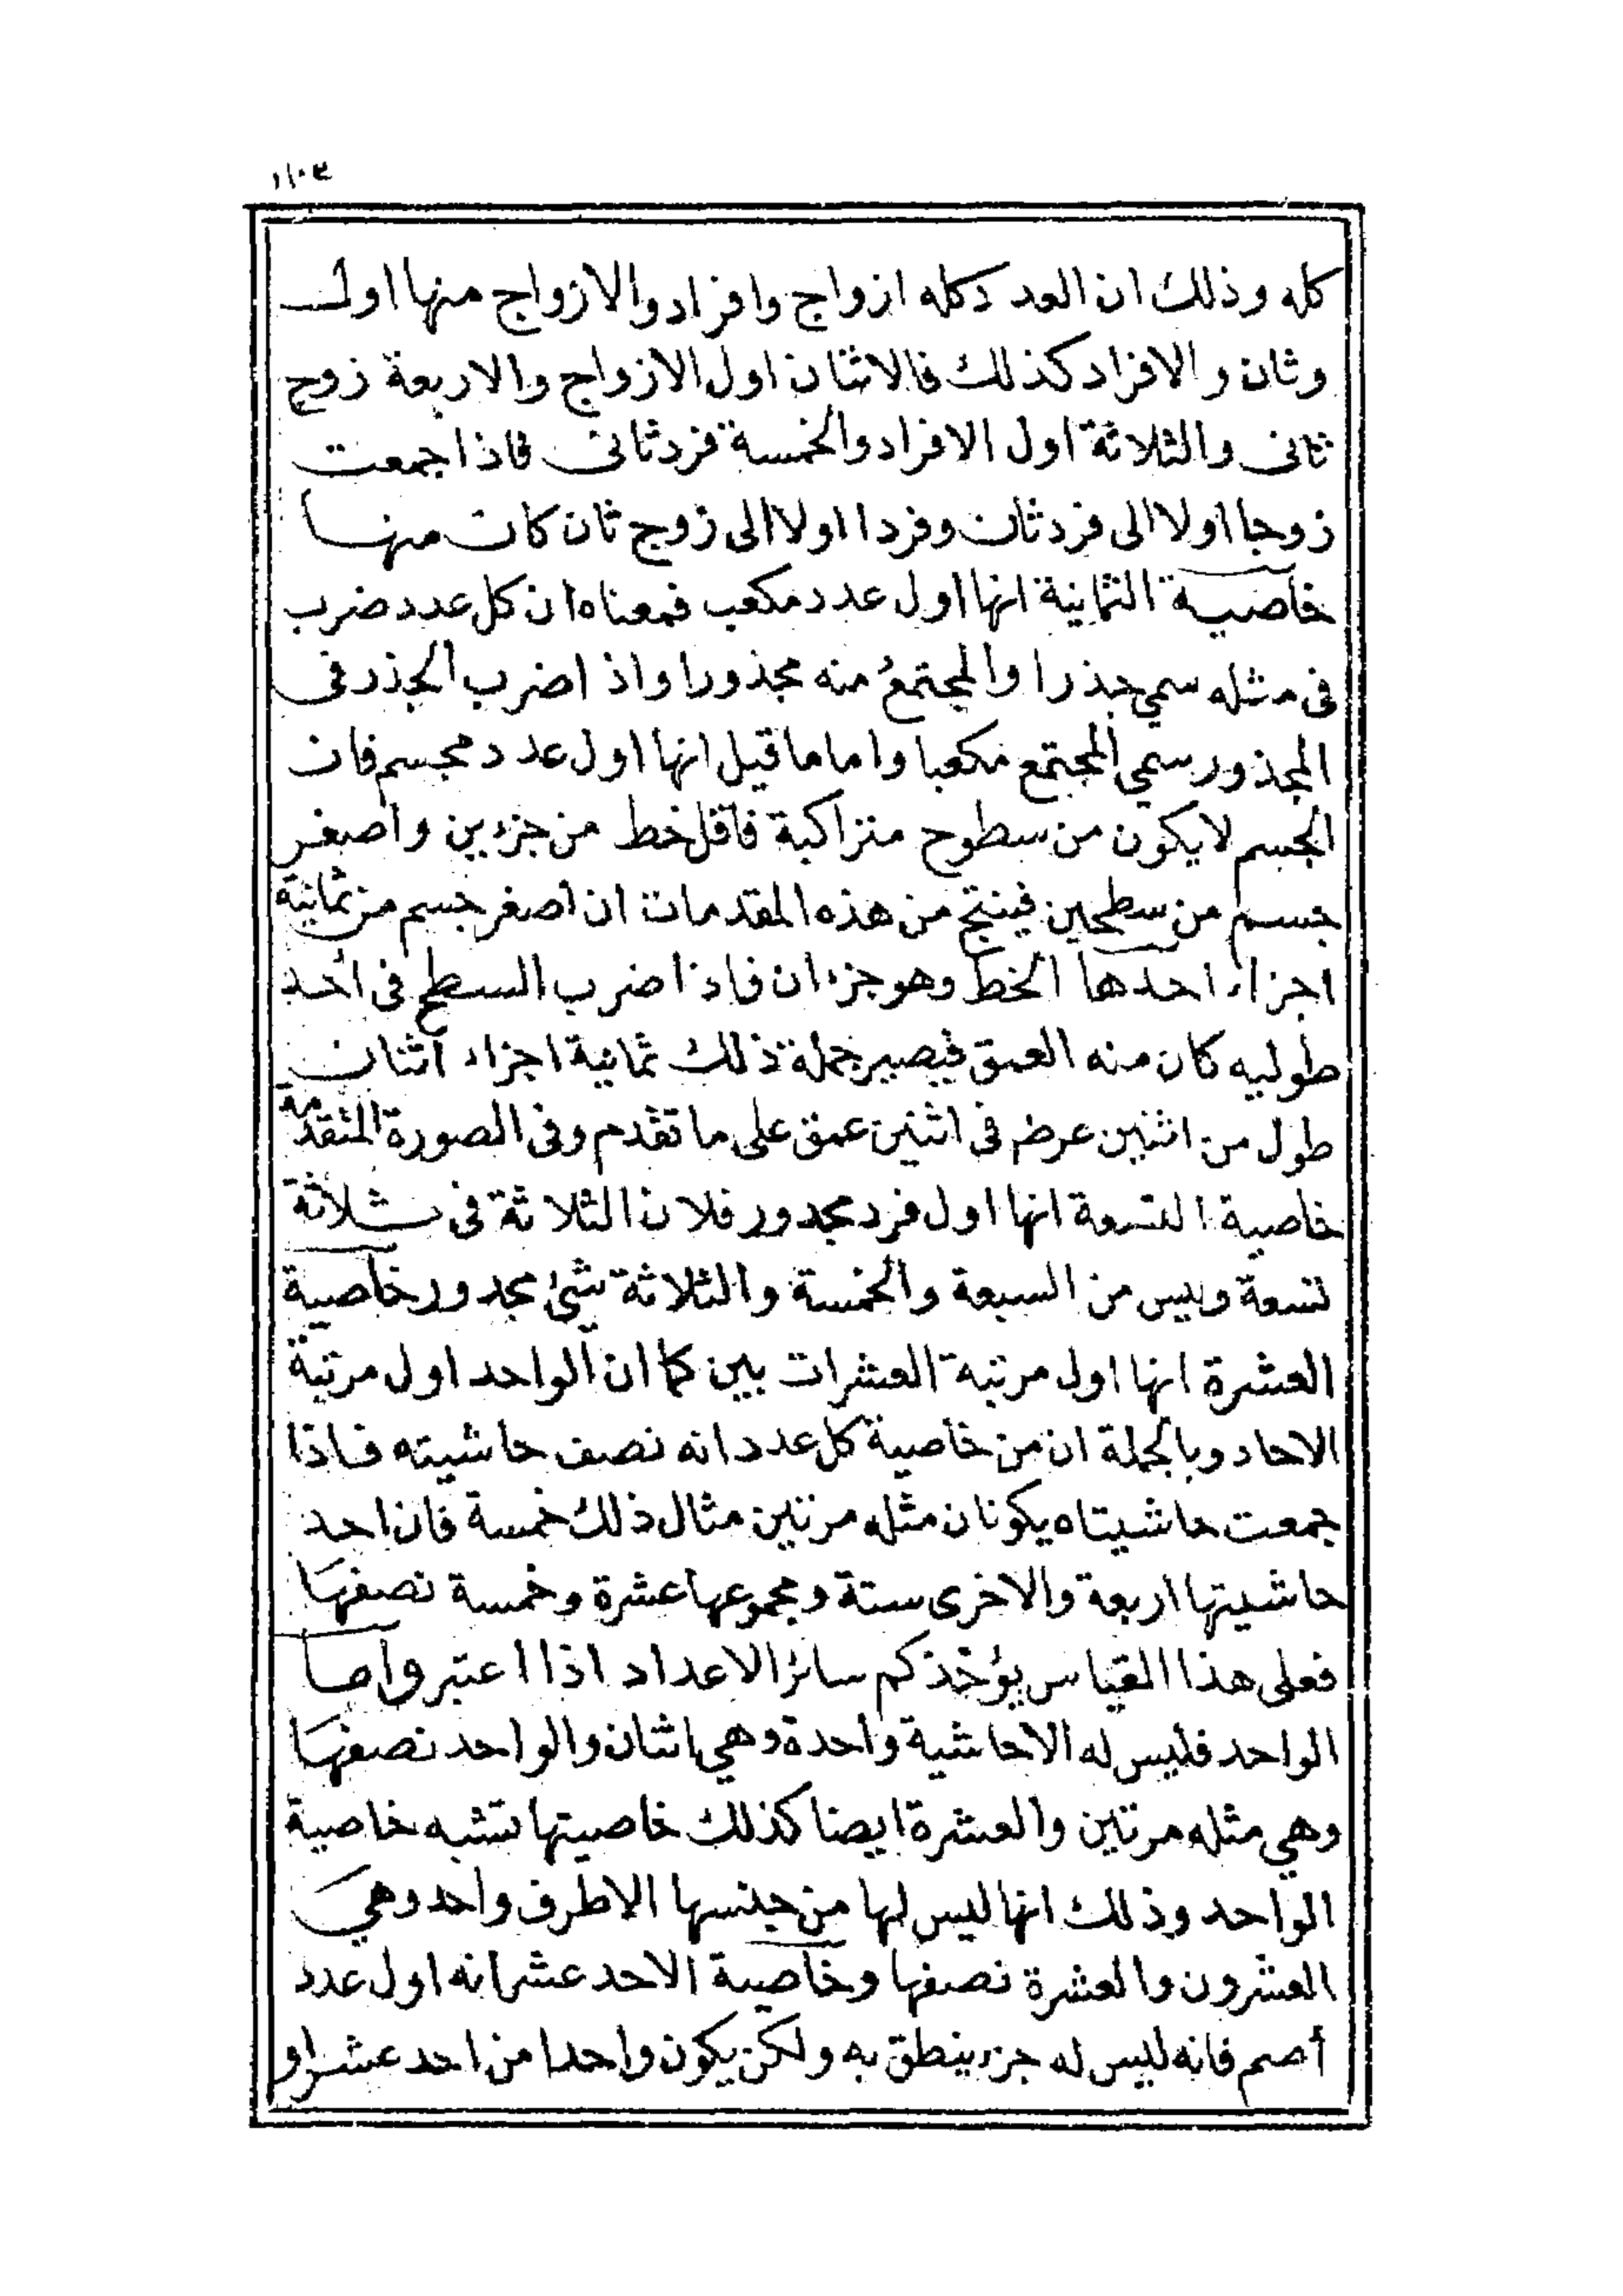 كله وذلك ان العدد كله ازواج وافراد والازواج منها اول
وثان والافراد كذلك فالاثنان اول الازواج والاربعة زوج
ثانى والثلاثة اول الافراد والخمسة فرد ثانى فاذا جمعت
زوجا اولا الى فرد ثان وفردا اولا الى زوج ثان كان منها
خاصية الثمانية انها اول عدد مكعب فمعناه ان كل عدد ضرب
فى مثله سمي جذرا والمجتمع منه مجذورا واذا ضرب الجذر فى
المجذور سمي المجتمع مكعبا واما ما قيل انها اول عدد مجسم فان
الجسم لا يكون من سطوح متراكبة فاقل خط من جزءين واصغر
جسم من سطحين فينتج من هذه المقدمات ان اصغر جسم من ثمانية
اجزاء احدها الخط وهو جزءان فاذا ضرب السطح فى احد
طوليه كان منه العمق فيصير جملة ذلك ثمانية اجزاء اثنان
طول من اثنين عرض فى اثنين عمق على ما تقدم وفى الصورة المتقدمة
خاصية التسعة انها اول فرد مجدور فلان الثلاثة فى ثلاثة
تسعة وليس من السبعة والخمسة والثلاثة شئ مجدور خاصية
العشرة انها اول مرتبة العشرات بين كما ان الواحد اول مرتبة
الاحاد وبالجملة ان من خاصية كل عدد انه نصف حاشيته فاذا
جمعت حاشيتاه يكونان مثله مرتين مثال ذلك خمسة فان احد
حاشيتها اربعة والاخرى ستة ومجموعها عشرة وخمسة نصفها
فعلى هذا القياس يؤخذ كم سائر الاعداد اذا اعتبر واما
الواحد فليس له الا حاشية واحدة وهي اثنان والواحد نصفها
وهي مثله مرتين والعشرة ايضا كذلك خاصيتها تشبه خاصية
الواحد وذلك انها ليس لها من جنسها الا طرف واحد وهي
العشرون والعشرة نصفها وخاصية الاحد عشر انه اول عدد
أصم فانه ليس له جزء ينطق به ولكن يكون واحدا من احد عشر او